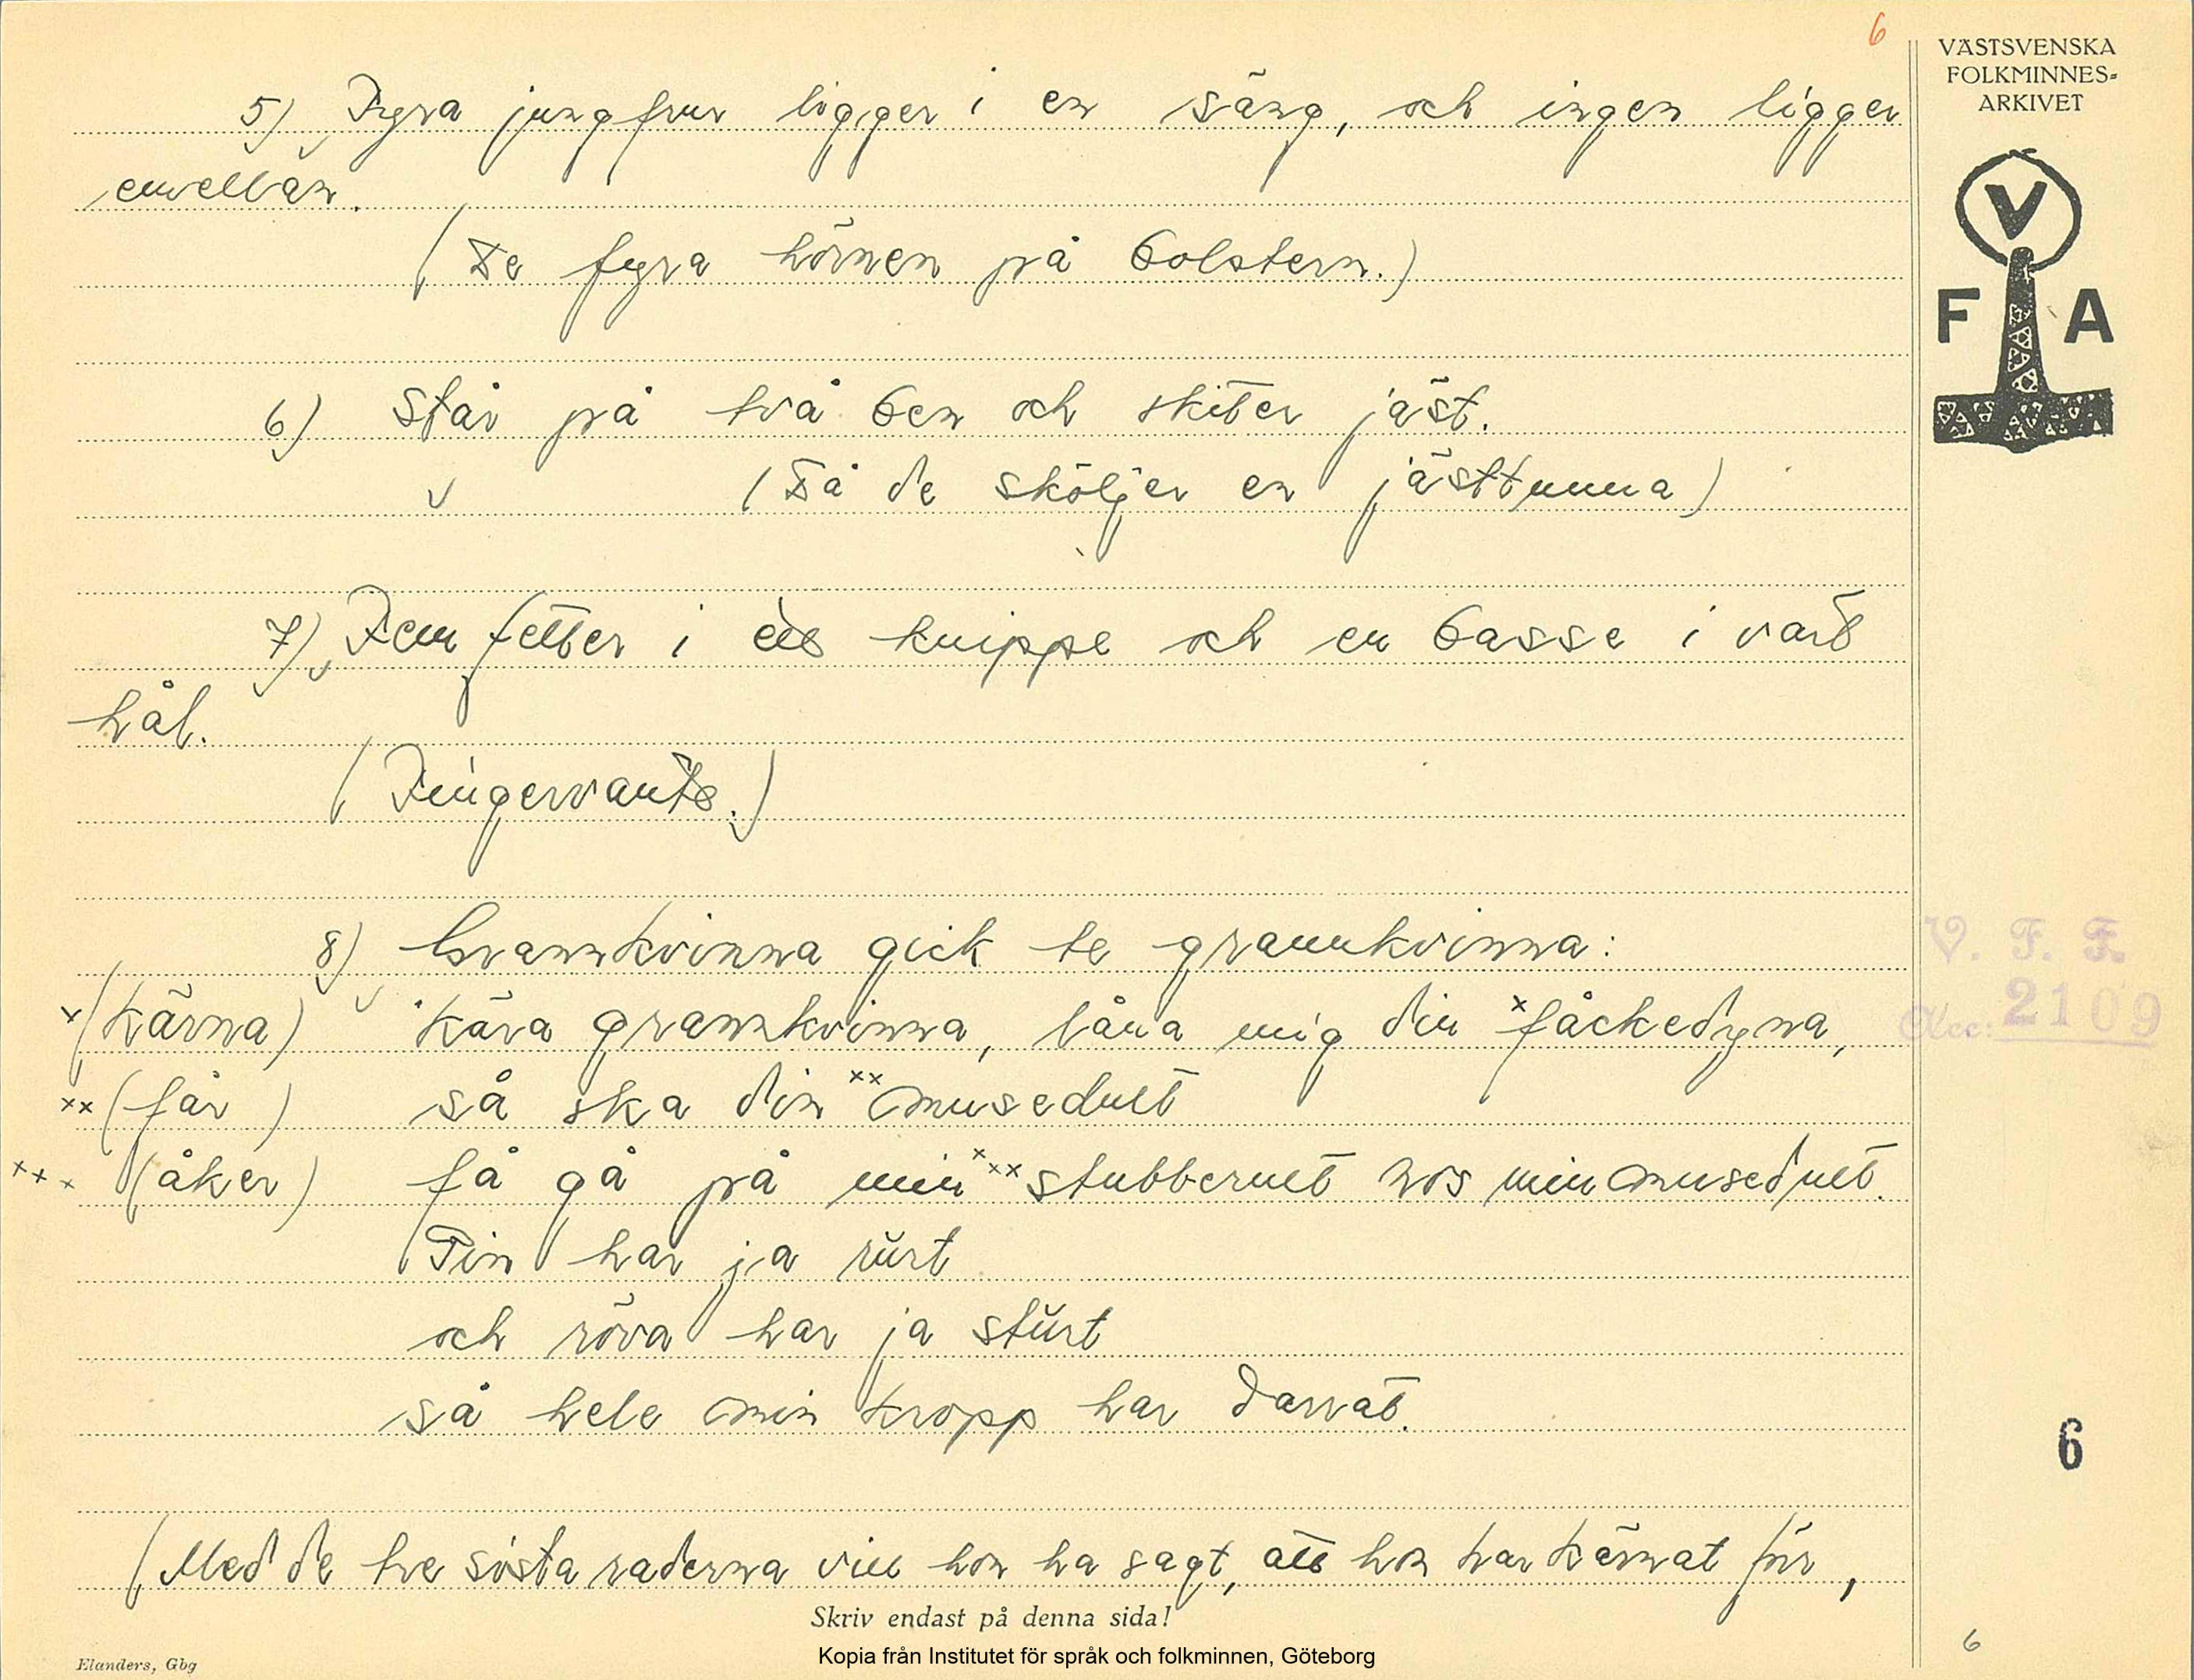 6
VÄSTSVENSKA
FOLKMINNES-
ARKIVET
V
F A
5) Fyra jungfrur ligger i en säng, och ingen ligger
emellan.
(De fyra hörnen på bolstern.)
6) Står på två ben och skiter jäst.
(Då de sköljer en jästtunna)
7) Fem fetter i ett knippe och en basse i vart
hål.
(Fingervante.)
8) Grannkvinna gick te grannkvinna:
x (Kärna) Kära grannkvinna, låna mig din x fåckedyna,
xx (får) så ska din xx musedult
xxx (åker) få gå på min xxx stubberult hos min musedult.
Tin har ja rürt
och röva har ja stürt
så hele min kropp har darrat.
(Med de tre sista raderna vill hon ha sagt, att hon har kärnat för,
V. F. F.
Acc: 2109
6
Skriv endast på denna sida!
6
Kopia från Institutet för språk och folkminnen, Göteborg
Elanders, Gbg